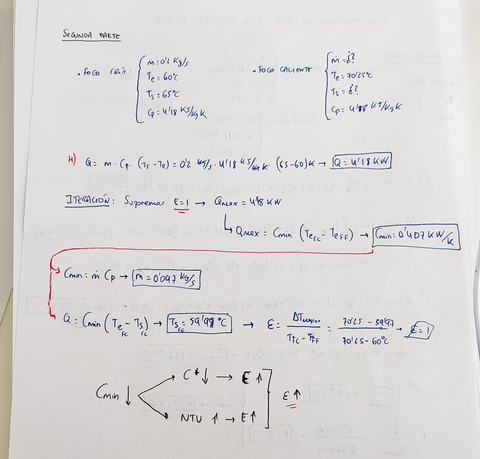 SEGUNDA PARTE
• FOCO FRÍO: ṁ = 0'2 kg/s
Te = 60°C
Ts = 65°C
Cp = 4'18 KJ/kg K
• FOCO CALIENTE: ṁ = ¿?
Te = 70'25°C
Ts = ¿?
Cp = 4'18 KJ/kg K
H) Q = ṁ · Cp · (Ts - Te) = 0'2 kg/s · 4'18 KJ/kg K · (65-60) K → Q = 4'18 KW
ITERACIÓN: Suponemos E=1 → Qmax = 4'18 KW
↳ Qmax = Cmin (TeFC - TeFF) → Cmin = 0'407 KW/K
Cmin = ṁ Cp → ṁ = 0'097 kg/s
Q = Cmin (TeFC - TsFC) → TsFC = 59'98 °C → E = ΔTmayor / TFC - TFF = 70'25 - 59'97 / 70'25 - 60°C → E=1
Cmin ↓
C* ↓ → E ↑
NTU ↑ → E ↑
E ↑